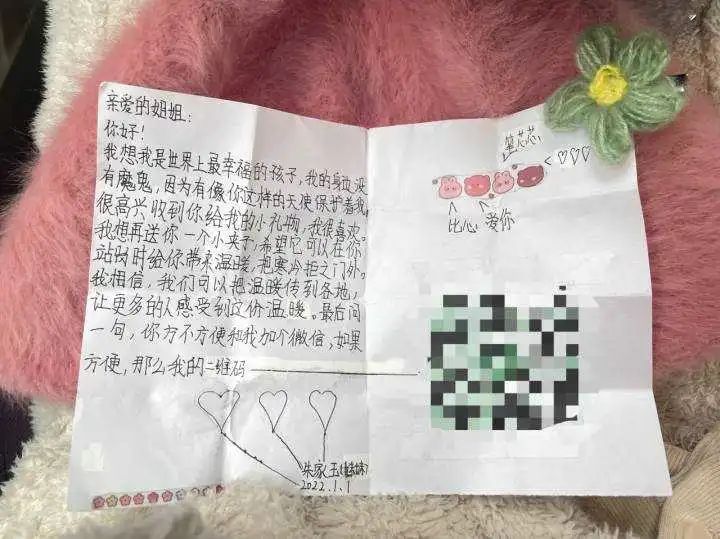 亲爱的姐姐:
你好!
我想我是世界上最幸福的孩子,我的身边没
有魔鬼,因为有像你这样的天使保护着我。
很高兴收到你给我的小礼物,我很喜欢。
我想再送你一个小夹子,希望它可以在你
站岗时给你带来温暖,把寒冷拒之门外。
我相信,我们可以把温暖传到各地,
让更多的人感受到这份温暖。最后问
一句,你方不方便和我加个微信,如果
方便,那么我的二维码
朱家玉(妹妹)
2022.1.1
笔芯芯
比心 爱你